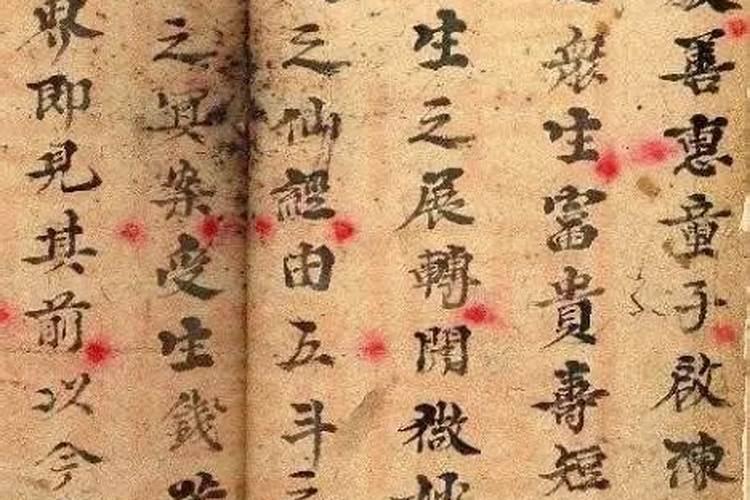 善惠童子啟陳
般生富貴壽短
生之展轉開微妙
之仙經由五斗之
之冥案受生錢
即見其前以今